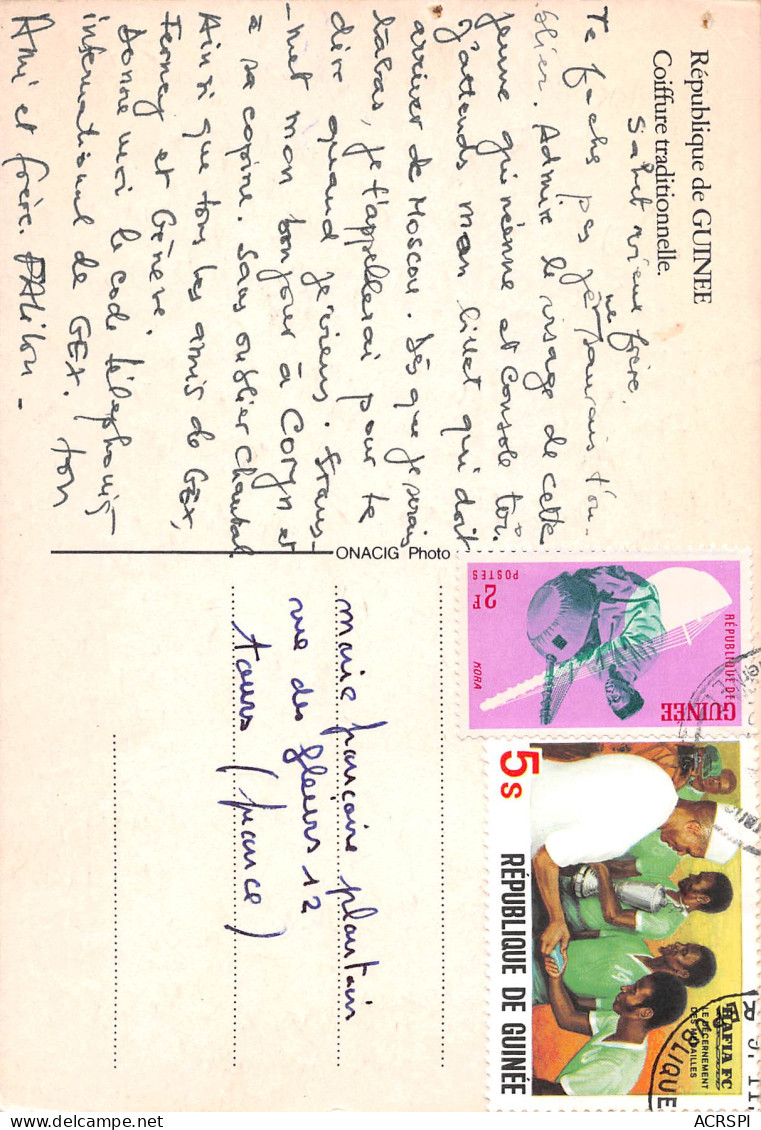 République de GUINEE
Coiffure traditionnelle.
Salut vieux frère,
Te fache pas je ne saurais t'ou-
blier. Admire le visage de cette
jeune guinéenne et console toi.
J'attends mon billet qui doit
arriver de Moscou. Dès que je serais
labas, je t'appellerai pour te
dire quand je viens. Trans-
-met mon bonjour à Coryn et
à sa copine. Sans oublier Chantal
Ainsi que tous les amis de Gex,
Ferney et Génève.
Donne moi le code téléphonique
international de GEX. ton
Ami et frère.
ONACIG Photo
marie françoise plantain
rue des fleurs 12
tours (france)
RÉPUBLIQUE DE
GUINÉE
KORA
2F
POSTES
5s
RÉPUBLIQUE DE GUINÉE
HAFIA FC
LE DÉCERNEMENT
DES MÉDAILLES
BLIQUE
ACRSPI